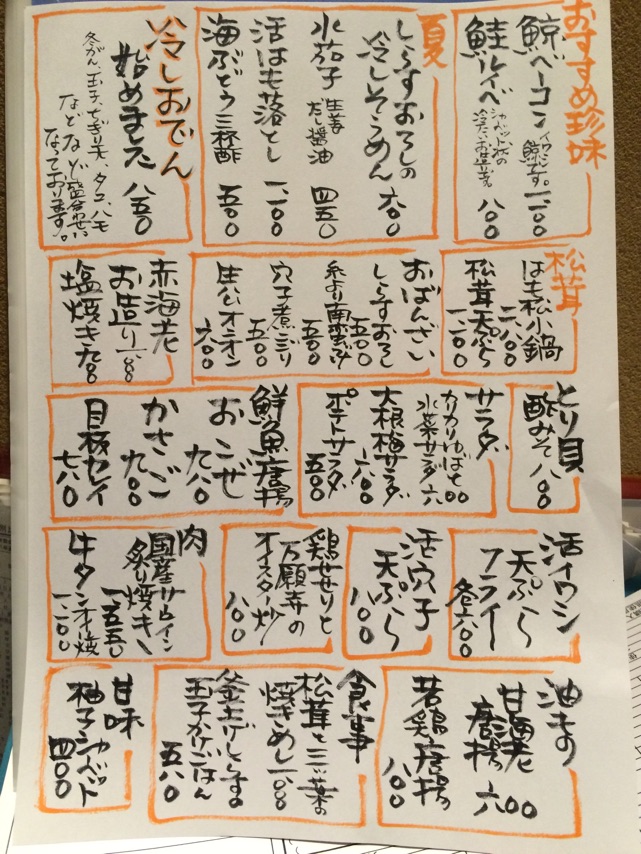 おすすめ珍味
鯨ベーコン
イワシ鯨です。
一、一〇〇
鮭ルイベ
シャーベット状の
冷たいお造りです。
八〇〇
夏
しらすおろしの
冷しそうめん 六〇〇
水茄子 生姜
だし醤油 四五〇
活はも落とし 一、一〇〇
海ぶどう 三杯酢 五〇〇
冷しおでん
始めました 八五〇
冬がん、玉子、ちぎり天、タコ、ハモ
などなど盛合せに
なっております。
松茸
はも松小鍋
二、八〇〇
松茸天ぷら
一、二〇〇
おばんざい
しらすおろし
五〇〇
糸より南蛮漬け
五〇〇
穴子煮こごり
五〇〇
生ハムオニオン
六〇〇
赤海老
お造り 一、一〇〇
塩焼き 九〇〇
とり貝
酢みそ 八〇〇
サラダ
カリカリゆばと
水菜サラダ 六〇〇
大根梅サラダ
六〇〇
ポテトサラダ
五〇〇
鮮魚唐揚
おこぜ
九八〇
かさご
九〇〇
目板カレイ
七八〇
活イワシ
天ぷら
フライ
各六〇〇
活穴子
天ぷら
一、一〇〇
鶏せせりと
万願寺の
オイスター炒
八〇〇
肉
国産サーロイン
炙り焼き
一、五五〇
牛タン才塩焼
一、一〇〇
油もの
甘海老
唐揚 六〇〇
若鶏唐揚
八〇〇
食事
松茸と三ッ葉の
焼きめし 一、一〇〇
釜上げしらすの
玉子かけごはん
五八〇
甘味
柚子シャーベット
四〇〇